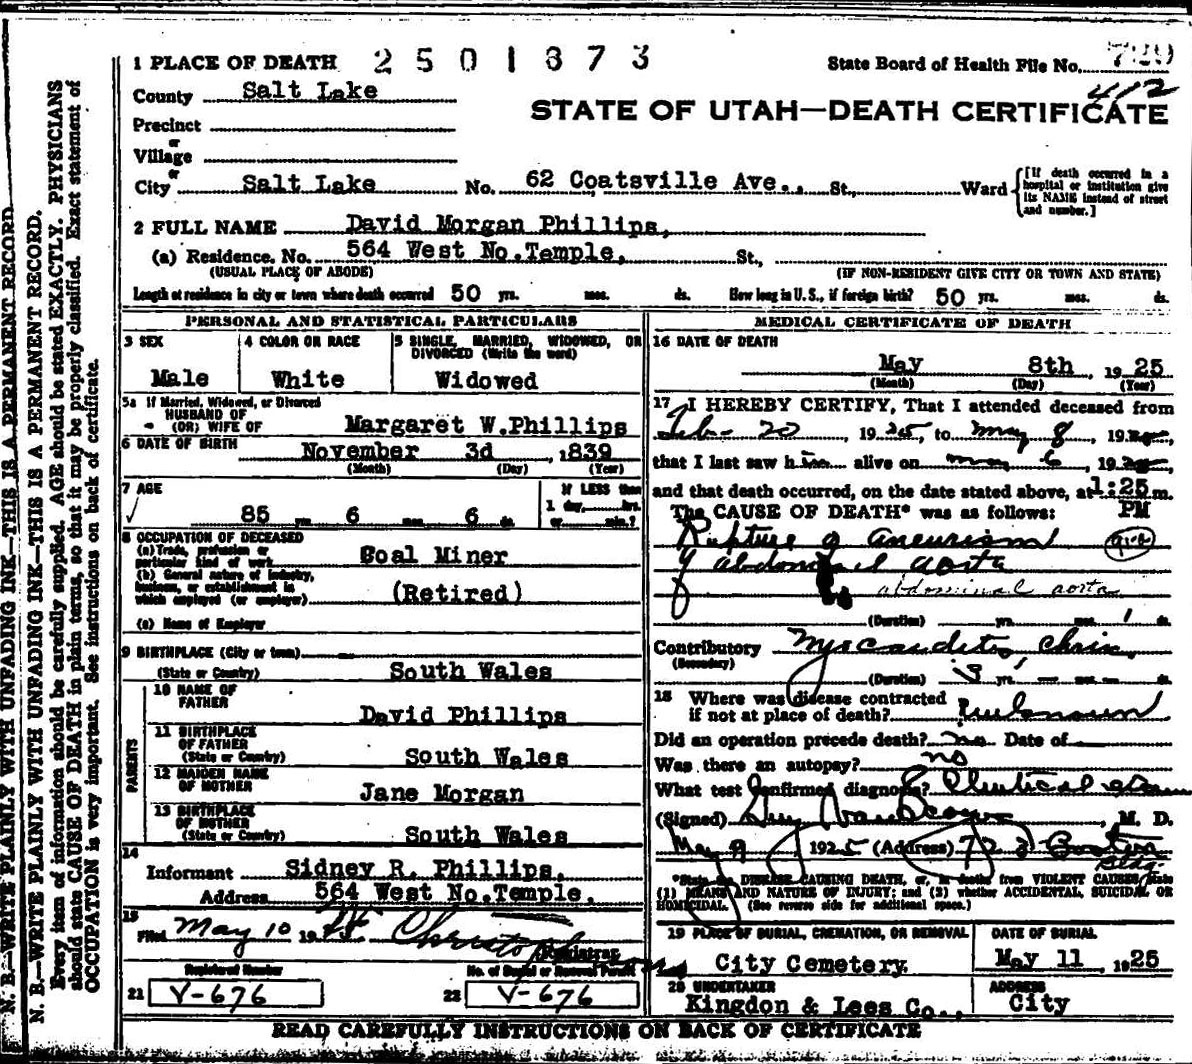 1 PLACE OF DEATH 2501373 State Board of Health File No. 729
412
County Salt Lake
STATE OF UTAH—DEATH CERTIFICATE
Precinct
or
Village
or
City Salt Lake No. 62 Coatsville Ave., St., Ward
[If death occurred in a hospital or institution give its NAME instead of street and number.]
2 FULL NAME David Morgan Phillips,
(a) Residence. No. 564 West No.Temple, St.,
(USUAL PLACE OF ABODE) (IF NON-RESIDENT GIVE CITY OR TOWN AND STATE)
Length of residence in city or town where death occurred 50 yrs. mos. ds. How long in U. S., if foreign birth? 50 yrs. mos. ds.
PERSONAL AND STATISTICAL PARTICULARS
3 SEX
Male
4 COLOR OR RACE
White
5 SINGLE, MARRIED, WIDOWED, OR
DIVORCED (Write the word)
Widowed
5a If Married, Widowed, or Divorced
HUSBAND OF
(OR) WIFE OF Margaret W.Phillips
6 DATE OF BIRTH November 3d, 1839
(Month) (Day) (Year)
7 AGE
85 yrs. 6 mos. 6 ds.
If LESS than
1 day,....hrs.
or....min.?
8 OCCUPATION OF DECEASED
(a) Trade, profession or
particular kind of work Coal Miner
(b) General nature of industry,
business, or establishment in
which employed (or employer) (Retired)
(c) Name of Employer
9 BIRTHPLACE (City or town)
(State or Country) South Wales
PARENTS
10 NAME OF
FATHER David Phillips
11 BIRTHPLACE
OF FATHER
(State or Country) South Wales
12 MAIDEN NAME
OF MOTHER Jane Morgan
13 BIRTHPLACE
OF MOTHER
(State or Country) South Wales
14
Informant Sidney R. Phillips.
Address 564 West No.Temple.
15
Filed May 10 1925
Registrar
Registered Number
21 V-676
No. of Burial or Removal Permit
22 V-676
MEDICAL CERTIFICATE OF DEATH
16 DATE OF DEATH
May 8th, 1925
(Month) (Day) (Year)
17 I HEREBY CERTIFY, That I attended deceased from
Feb- 20, 1925, to May 8, 1925,
that I last saw him alive on May 6, 1925,
and that death occurred, on the date stated above, at 1:25 m.
PM
The CAUSE OF DEATH* was as follows:
Rupture of aneurism
of abdominal aorta
abdominal aorta
(Duration) yrs. mos. 1 ds.
Contributory Myocarditis, Chron.
(Secondary)
(Duration) 3 yrs. mos.
18 Where was disease contracted
if not at place of death? Unknown
Did an operation precede death? no Date of
Was there an autopsy? no
What test confirmed diagnosis? Clinical
(Signed) M. D.
May 9 1925 (Address) 723
Bldg.
*State the DISEASE CAUSING DEATH, or, in deaths from VIOLENT CAUSES, state
(1) MEANS AND NATURE OF INJURY; and (2) whether ACCIDENTAL, SUICIDAL OR
HOMICIDAL. (See reverse side for additional space.)
19 PLACE OF BURIAL, CREMATION, OR REMOVAL
City Cemetery.
DATE OF BURIAL
May 11, 1925
20 UNDERTAKER
Kingdon & Lees Co.,
ADDRESS
City
READ CAREFULLY INSTRUCTIONS ON BACK OF CERTIFICATE
N. B.—WRITE PLAINLY WITH UNFADING INK—THIS IS A PERMANENT RECORD
N. B.—WRITE PLAINLY WITH UNFADING INK—THIS IS A PERMANENT RECORD.
Every item of information should be carefully supplied. AGE should be stated EXACTLY. PHYSICIANS
should state CAUSE OF DEATH in plain terms, so that it may be properly classified. Exact statement of
OCCUPATION is very important. See instructions on back of certificate.